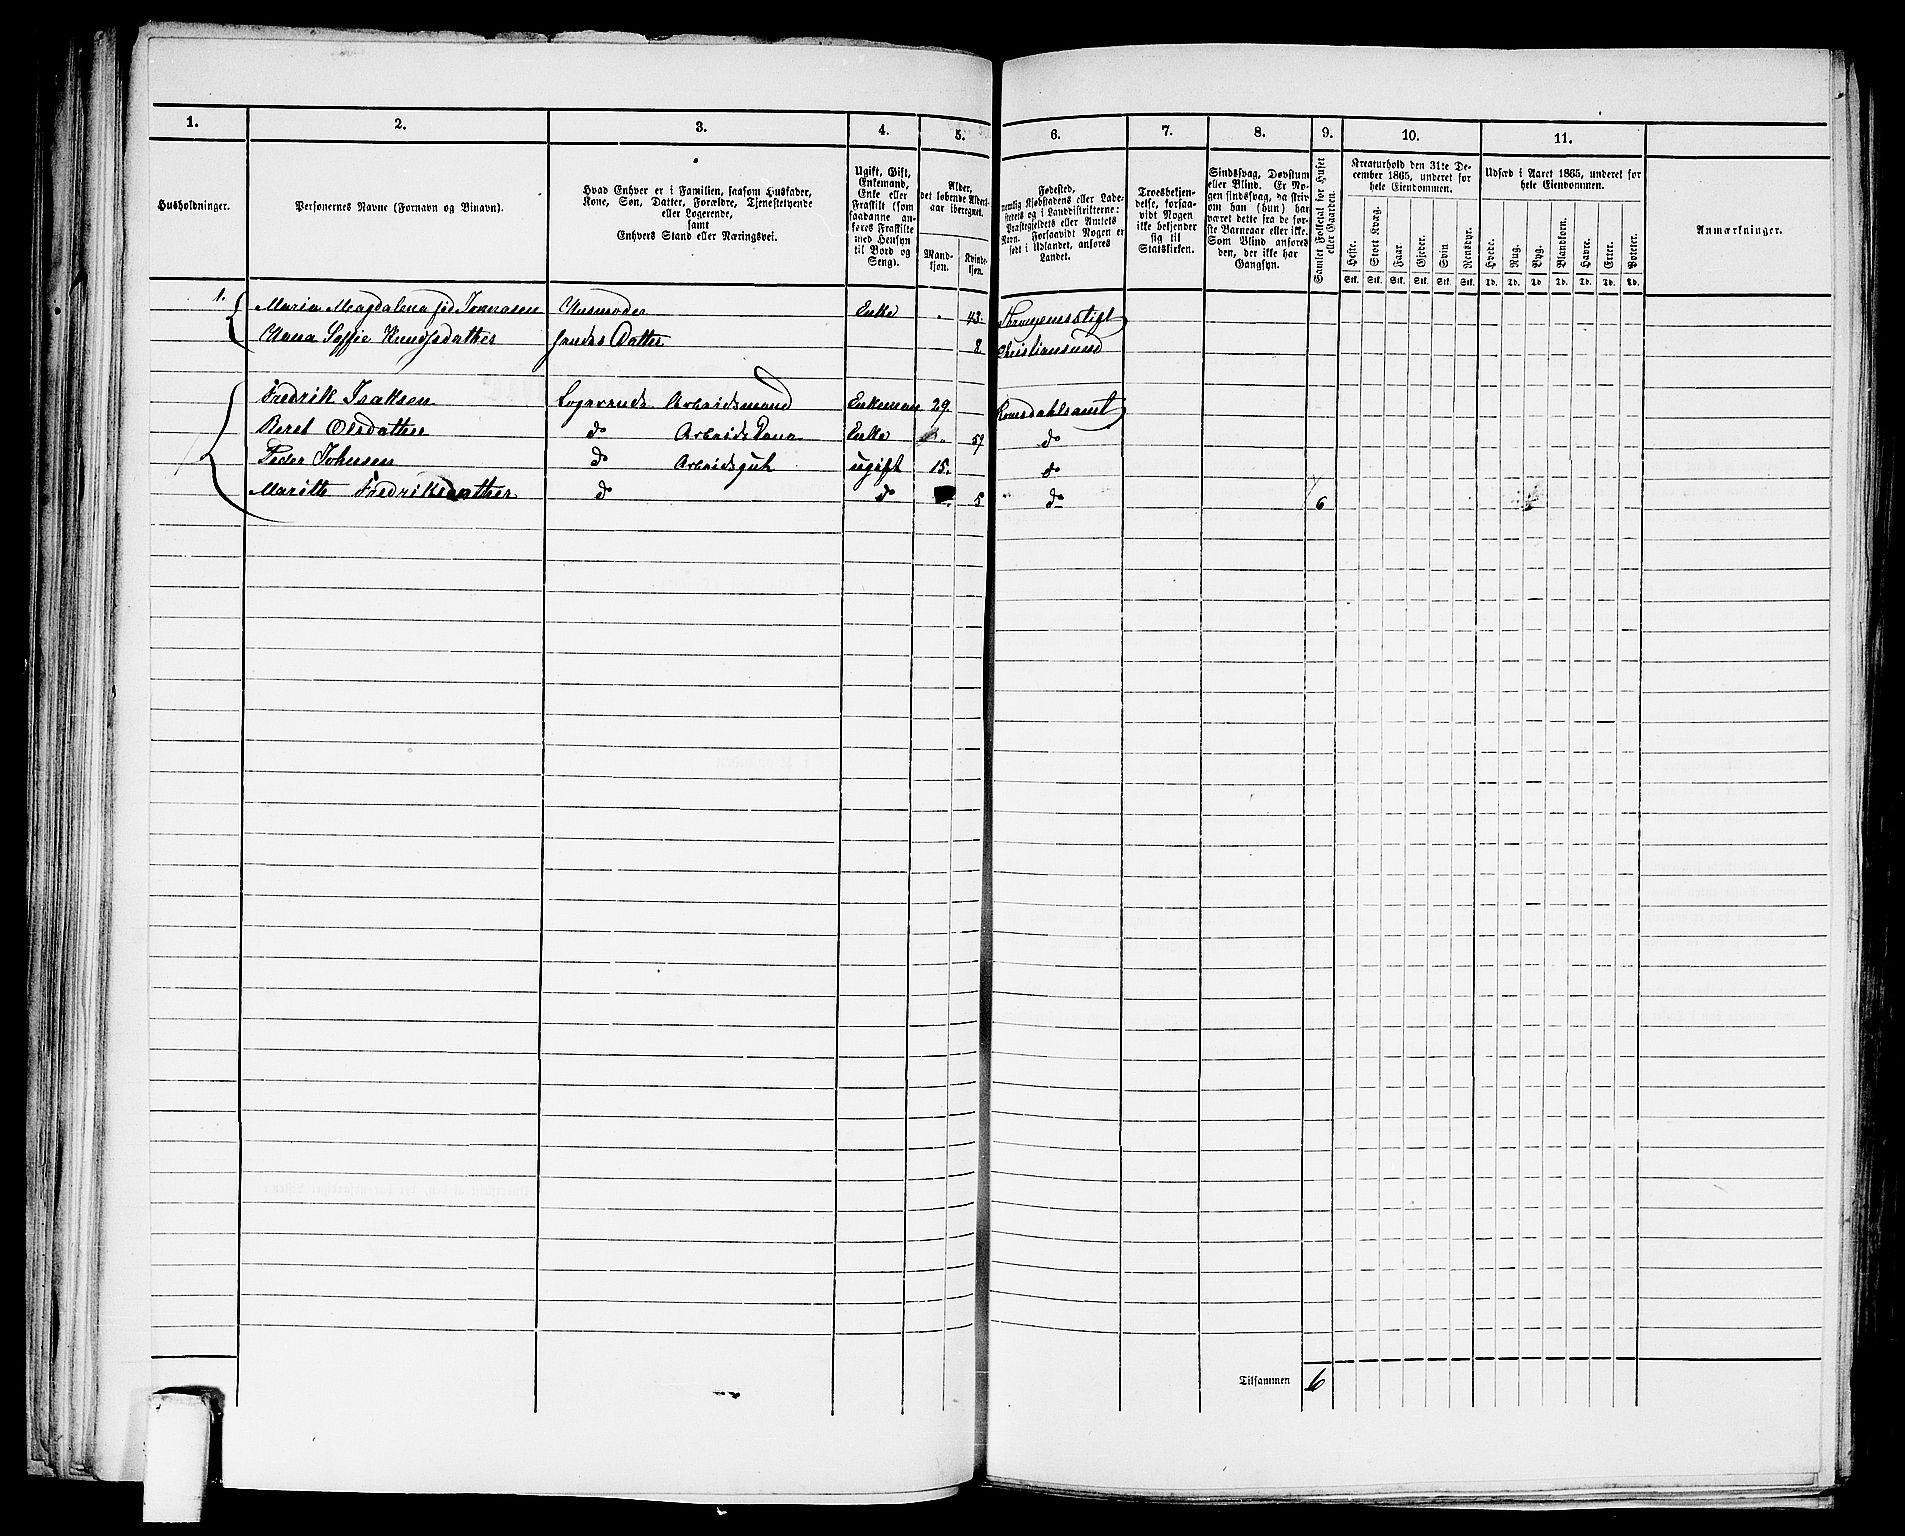 1. 2. 3. 4. 5. 6. 7. 8. 9. 10. 11.
Husholdninger.
Personernes Navne (Fornavn og Binavn).
Hvad Enhver er i Familien, saasom Husfader,
Kone, Søn, Datter, Forældre, Tjenestetyende
eller Logerende,
samt
Enhvers Stand eller Næringsvei.
Ugift, Gift,
Enkemand,
Enke eller
Fraskilt (som
saadanne an-
føres Fraskilte
med Hensyn
til Bord og
Seng).
Alder,
det løbende Alders-
aar iberegnet.
Mand-
kjøn.
Kvinde-
kjøn.
Fødested,
nemlig Kjøbstadens eller Lade-
stedets og i Landdistrikterne:
Præstegjeldets eller Amtets
Navn. Forsaavidt Nogen er
født i Udlandet, anføres
Landet.
Troesbekjen-
delse, forsaa-
vidt Nogen
ikke bekjender
sig til
Statskirken.
Sindssvag, Døvstum
eller Blind. Er No-
gen sindssvag, da skriv
om han (hun) har
været dette fra de før-
ste Barneaar eller ikke.
Som Blind anføres
den, der ikke har
Gangsyn.
Samlet Folketal for Huset
eller Gaarden.
Kreaturhold den 31te De-
cember 1865, underet for
hele Eiendommen.
Heste. Stort Kvæg. Faar. Gjeder. Svin Rensdyr.
Stk. Stk. Stk. Stk. Stk. Stk.
Udsæd i Aaret 1865, underet for
hele Eiendommen.
Hvede. Rug. Byg. Blandkorn. Havre. Erter. Poteter.
Td. Td. Td. Td. Td. Td. Td.
Anmærkninger.
1. Maria Magdalena fød Husmoder Enke 43.
Anna Soffie Knudsdatter Datter 8 Christiansund
Fredrik Isaksen Logerende Arbeidsmand Enkeman 29. Romsdahlsamt
Beret Olsdatter do Enke 59 do
Peder Johnsen do Arbeidsgut ugift 15. do
Maritte Fredriksdatter do do 5 do 6
Tilsammen 6